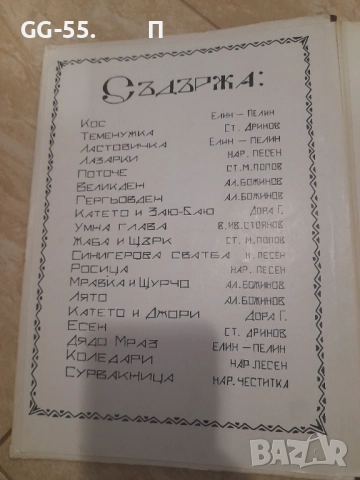 GG-55. П
Съдържа:
Кос Елин-Пелин
Теменужка Ст. Дринов
Ластовичка Елин-Пелин
Лазарки Нар. песен
Поточе Ст. М. Попов
Великден Ал. Божинов
Гергьовден Ал. Божинов
Катето и Заю-Баю Дора Г.
Умна глава В. Ив. Стоянов
Жаба и Щърк Ст. М. Попов
Синигерова сватба Н. песен
Росица Нар. песен
Мравка и Щурчо Ал. Божинов
Лято Ал. Божинов
Катето и Джори Дора Г.
Есен Ст. Дринов
Дядо Мраз Елин-Пелин
Коледари Нар. песен
Сурвакница Нар. честитка
BAZAR